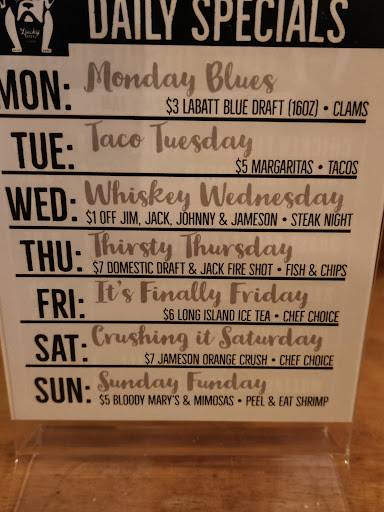 Lucky
DAILY SPECIALS
MON: Monday Blues
$3 LABATT BLUE DRAFT (16OZ) • CLAMS
TUE: Taco Tuesday
$5 MARGARITAS • TACOS
WED: Whiskey Wednesday
$1 OFF JIM, JACK, JOHNNY & JAMESON • STEAK NIGHT
THU: Thirsty Thursday
$7 DOMESTIC DRAFT & JACK FIRE SHOT • FISH & CHIPS
FRI: It's Finally Friday
$6 LONG ISLAND ICE TEA • CHEF CHOICE
SAT: Crushing it Saturday
$7 JAMESON ORANGE CRUSH • CHEF CHOICE
SUN: Sunday Funday
$5 BLOODY MARY'S & MIMOSAS • PEEL & EAT SHRIMP